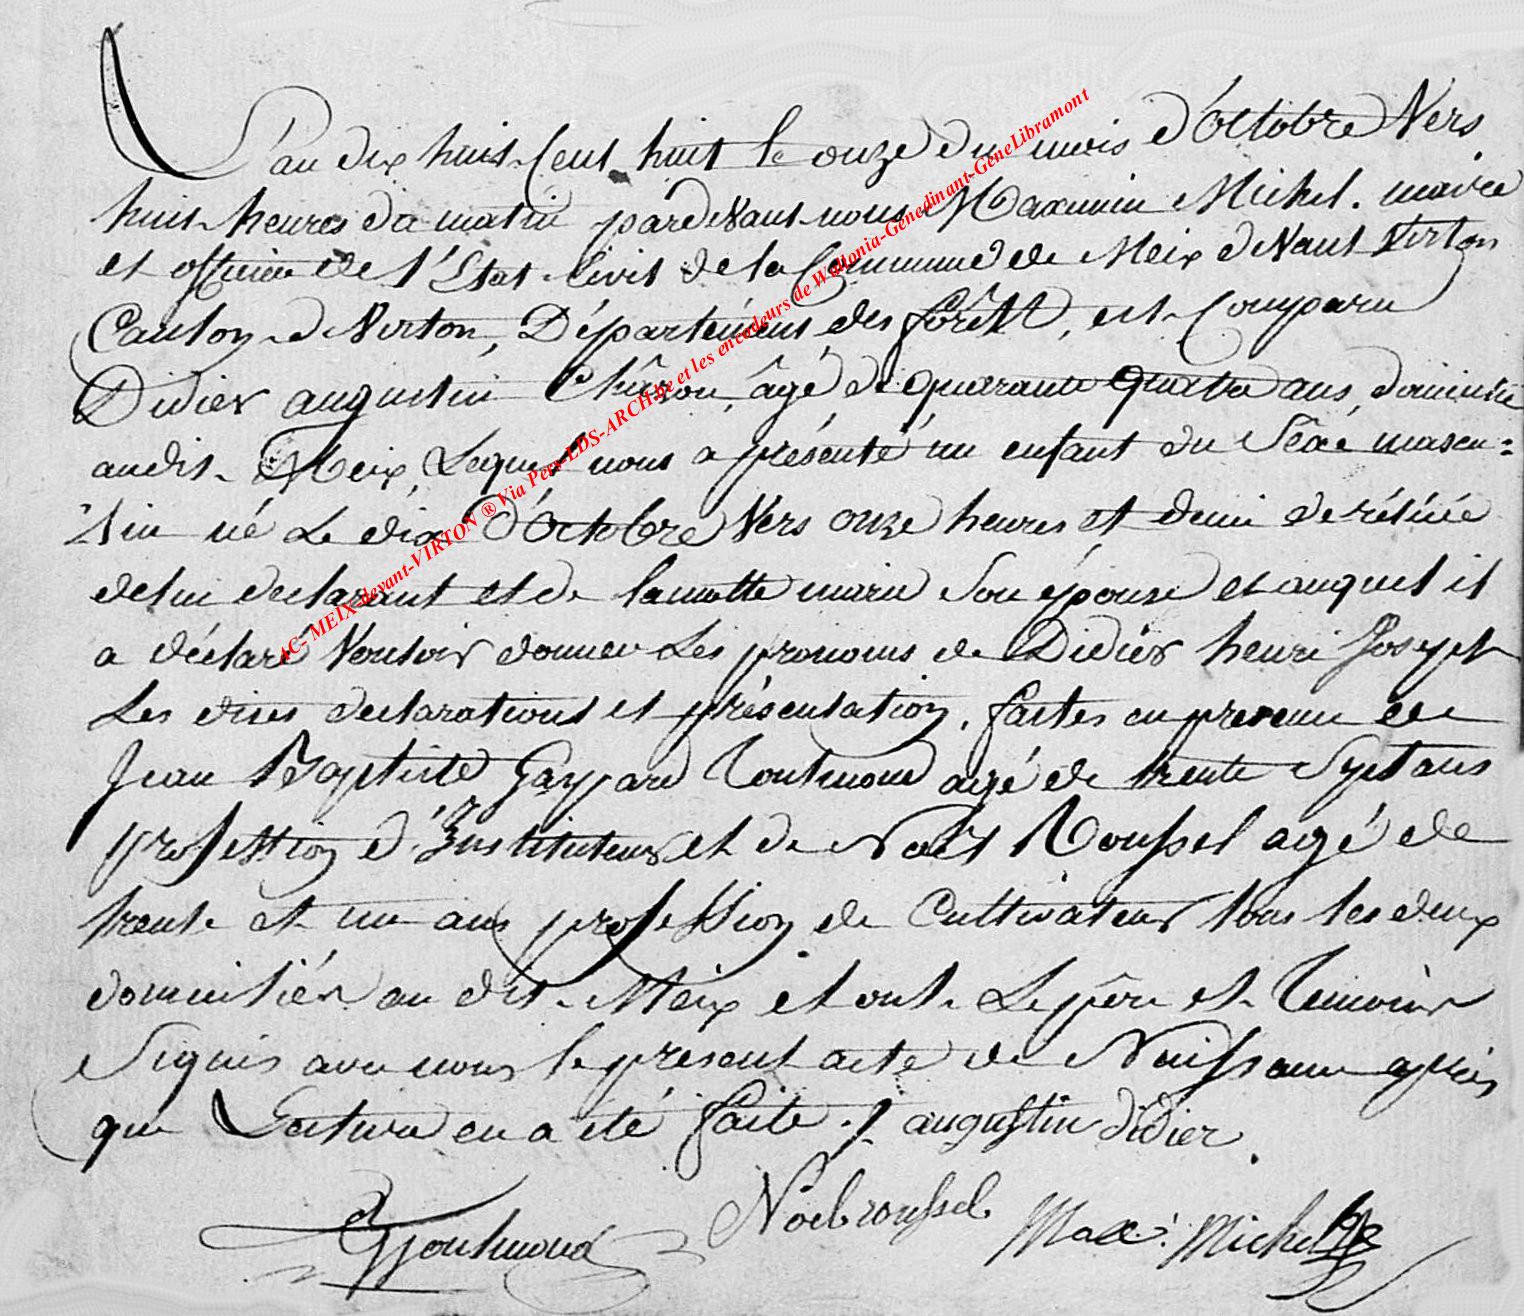 L'an dix huit Cent huit le onze du mois d'Octobre Vers
huit heures da matin pardevant nous Maximin Michel. maire
et officier de l'Etat Civil de la Commune de Meix devant Virton
Canton de Virton, Département des forêts, est Comparu
Didier augustin âgé de quarante quatre ans, domicilié
audit Meix, Lequel nous a présenté un enfant du Sêxe mascu=
lin né Le dix d'Octobre Vers onze heures et demi de rélévée
delui declarant et de lamotte marie Son épouse et auquel il
a déclaré Vouloir donner Les pronoms de Didier henri Joseph
Les dites declarations et présentation, faites en presence de
Jean Baptiste Gaspard Toutmond agé de trente Sept ans
profession d'Instituteur et de Noël Roussel agé de
trente et un ans profession de Cultivateur tous les deux
domiciliés au dit Meix et ont Le pére et Temoins
Signés avec nous le présent acte de Naissance après
que Lecture en a été faite ./. augustin didier
Toutmond Noel roussel Max: Michel
AC- MEIX-devant-VIRTON ® Via Pers-LDS-ARCHbe et les encodeurs de Wallonia-Genedinant-GeneLibramont